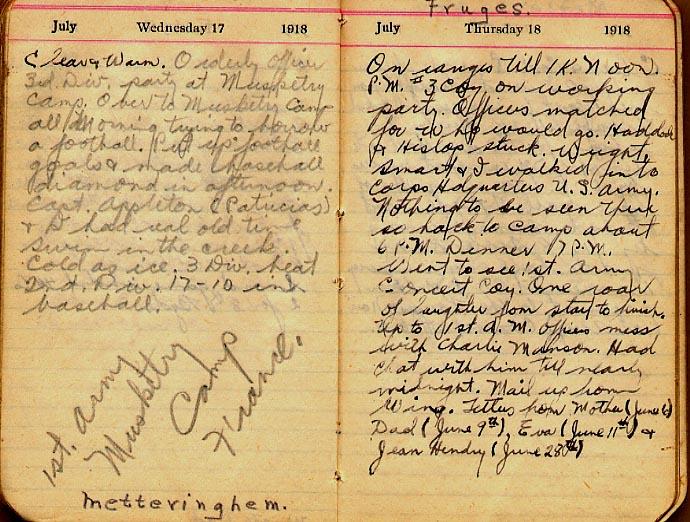 July Wednesday 17 1918
Clear & Warm. Orderly officer
3rd. Div. party at Musketry
Camp. Over to Musketry Camp
all morning trying to borrow
a football. Put up football
goals & made baseball
diamond in afternoon.
Capt. Appleton (Patricias)
& I had real old time
swim in the creek.
Cold as ice. 3 Div. beat
2nd. Div. 17-10 in
baseball.
1st. Army
Musketry
Camp
France.
Metteringhem.
Fruges.
July Thursday 18 1918
On ranges till 12 Noon.
P.M. #3 Coy. on working
party. Officers matched
for who would go. Haddock
& Hislop stuck. Wright,
Smart & I walked into
Corps Hdquarters U.S. Army.
Nothing to be seen there
so back to Camp about
6 P.M. Dinner 7 P.M.
Went to see 1st. Army
Concert Coy. One roar
of laughter from start to finish.
Up to 1st. A. M. Officers mess
with Charlie Manson. Had
chat with him till nearly
midnight. Mail up from
Wing. Letters from Mother (June 6)
Dad (June 9th), Eva (June 11th) &
Jean Hendry (June 28th)